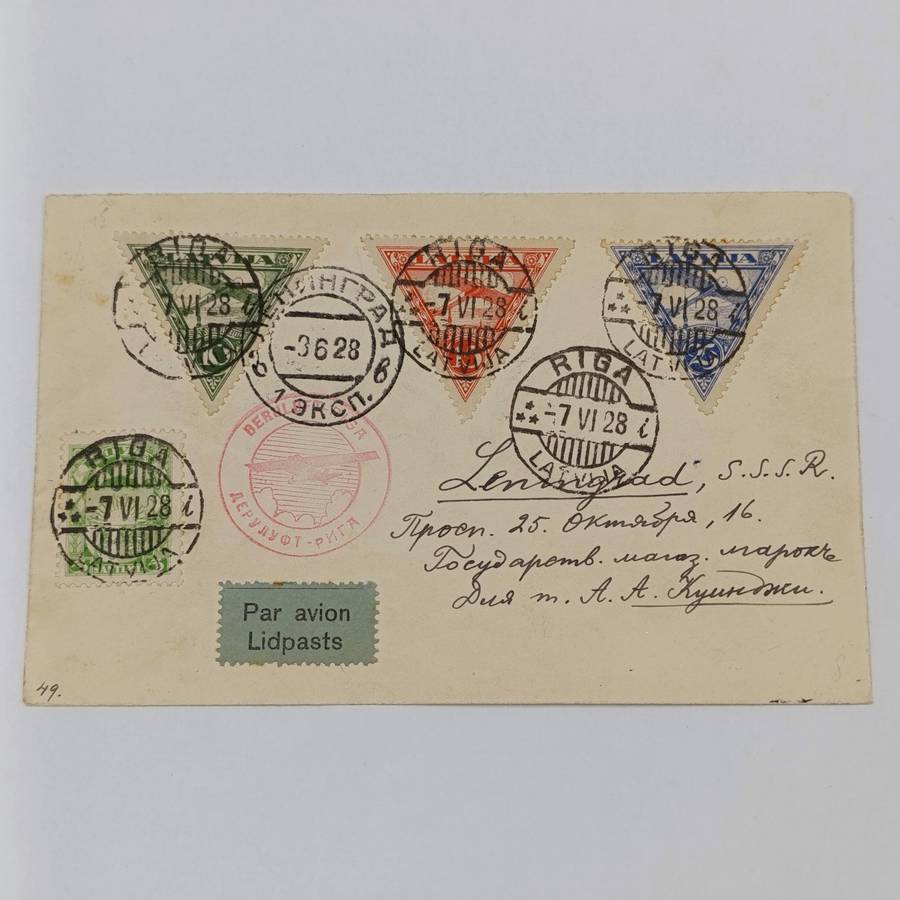 RIGA
LATVIJA
-7 VI 28 i
10
ЛЕНИНГРАД
-3 6 28
6 в
1 ЭКСП.
RIGA
-7 VI 28 i
LATVIJA
LATVIJA
RIGA
-7 VI 28 i
LATVIJA
25
RIGA
-7 VI 28 i
LATVIJA
RIGA
-7 VI 28 i
LATVIJA
5
RIGA
ДЕРУЛУФТ-РИГА
Leningrad, S.S.S.R.
Просп. 25. Октября, 16.
Государств. магаз. марокъ
Для т. А. А. Куинджи.
Par avion
Lidpasts
49.